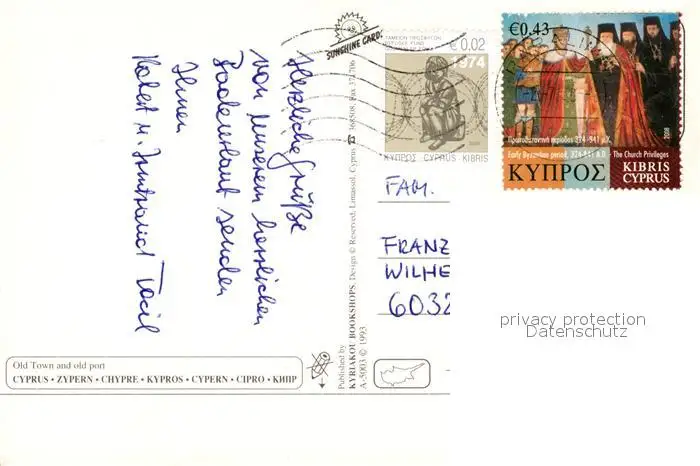 SUNSHINE CARDS
Herzliche Grüße
von unserem herzlichen
Badeurlaub senden
Ihnen
Robert u. Irmtraud
ΤΑΜΕΙΟΝ ΠΡΟΣΦΥΓΩΝ
REFUGEE FUND
€ 0.02
1974
2008
ΚΥΠΡΟΣ CYPRUS KIBRIS
€0,43
Πρωτοβυζαντινή περίοδος 324-841 μ.Χ.
Early Byzantine period, 324-841 A.D. - The Church Privileges
2008
ΚΥΠΡΟΣ
KIBRIS
CYPRUS
FAM.
FRANZ
WILHE
6032
privacy protection
Datenschutz
Published by
KYRIAKOU BOOKSHOPS, Design © Reserved, Limassol, Cyprus 368508, Fax 371706
A-5003 © 1993
Old Town and old port
CYPRUS • ZYPERN • CHYPRE • KYPROS • CYPERN • CIPRO • КИПР